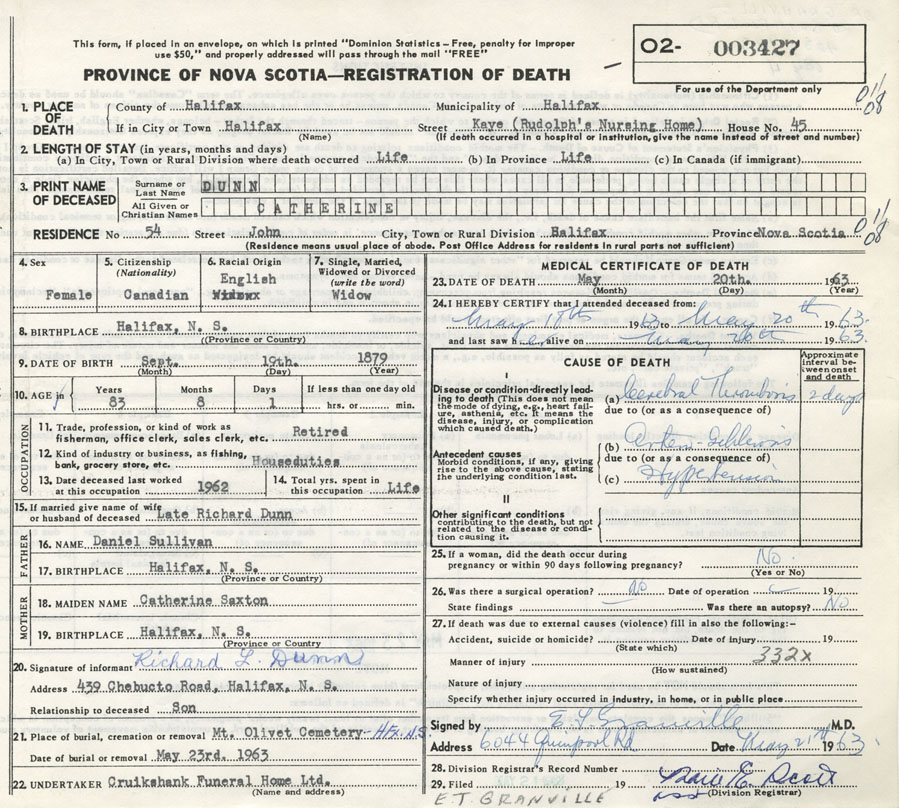 This form, if placed in an envelope, on which is printed "Dominion Statistics – Free, penalty for improper
use $50," and properly addressed will pass through the mail "FREE"
PROVINCE OF NOVA SCOTIA—REGISTRATION OF DEATH
O2- 003427
For use of the Department only
1. PLACE OF DEATH
County of Halifax Municipality of Halifax
If in City or Town Halifax Street Kaye (Rudolph's Nursing Home) House No. 45
(Name) (If death occurred in a hospital or institution, give the name instead of street and number)
2. LENGTH OF STAY (in years, months and days)
(a) In City, Town or Rural Division where death occurred Life (b) In Province Life (c) In Canada (if immigrant)
3. PRINT NAME OF DECEASED
Surname or Last Name DUNN
All Given or Christian Names CATHERINE
RESIDENCE No 54 Street John City, Town or Rural Division Halifax Province Nova Scotia
(Residence means usual place of abode. Post Office Address for residents in rural parts not sufficient)
4. Sex Female
5. Citizenship (Nationality) Canadian
6. Racial Origin English
7. Single, Married, Widowed or Divorced (write the word) Widow
8. BIRTHPLACE Halifax, N. S.
(Province or Country)
9. DATE OF BIRTH Sept. 19th. 1879
(Month) (Day) (Year)
10. AGE in Years 83 Months 8 Days 1 If less than one day old hrs. or min.
OCCUPATION
11. Trade, profession, or kind of work as
fisherman, office clerk, sales clerk, etc. Retired
12. Kind of industry or business, as fishing,
bank, grocery store, etc. Houseduties
13. Date deceased last worked at this occupation 1962
14. Total yrs. spent in this occupation Life
15. If married give name of wife
or husband of deceased Late Richard Dunn
FATHER
16. NAME Daniel Sullivan
17. BIRTHPLACE Halifax, N. S.
(Province or Country)
MOTHER
18. MAIDEN NAME Catherine Saxton
19. BIRTHPLACE Halifax, N. S.
(Province or Country)
20. Signature of informant Richard L. Dunn
Address 439 Chebucto Road, Halifax, N. S.
Relationship to deceased Son
21. Place of burial, cremation or removal Mt. Olivet Cemetery - Hfx. N.S.
Date of burial or removal May 23rd. 1963
22. UNDERTAKER Cruikshank Funeral Home Ltd.
(Name and address)
MEDICAL CERTIFICATE OF DEATH
23. DATE OF DEATH May 20th. 1963
(Month) (Day) (Year)
24. I HEREBY CERTIFY that I attended deceased from:
May 18th 1963 to May 20th 1963.
and last saw her alive on May 20th 1963.
CAUSE OF DEATH
Approximate interval between onset and death
I
Disease or condition directly leading to death (This does not mean the mode of dying, e.g., heart failure, asthenia, etc. It means the disease, injury, or complication which caused death.)
(a) Cerebral Thrombosis 2 days
due to (or as a consequence of)
Antecedent causes
Morbid conditions, if any, giving rise to the above cause, stating the underlying condition last.
(b)
due to (or as a consequence of)
(c) Hypertension
II
Other significant conditions
contributing to the death, but not related to the disease or condition causing it.
25. If a woman, did the death occur during
pregnancy or within 90 days following pregnancy? No.
(Yes or No)
26. Was there a surgical operation? no Date of operation 19
State findings Was there an autopsy? No
27. If death was due to external causes (violence) fill in also the following:-
Accident, suicide or homicide? Date of injury 19
(State which)
332x
Manner of injury
(How sustained)
Nature of injury
Specify whether injury occurred in industry, in home, or in public place
Signed by E T Granville M.D.
Address 6044 Quinpool Rd Date May 21st 1963.
28. Division Registrar's Record Number
29. Filed 19
(Division Registrar)
E.T. GRANVILLE